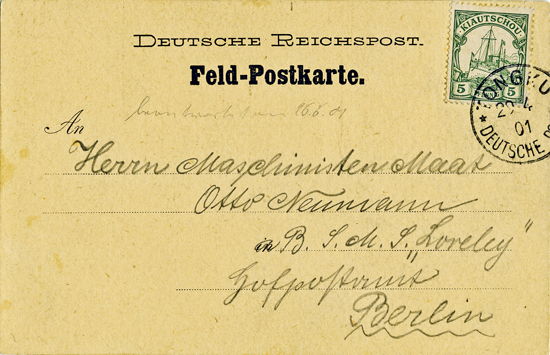 DEUTSCHE REICHSPOST.
Feld-Postkarte.
KIAUTSCHOU
5 5
TONGKU
29
01
* DEUTSCHE P
beantwortet am 16.6.01
An
Herrn Maschinisten Maat
Otto Neumann
an B. S. M. S. „Loreley"
Hofpostamt
Berlin